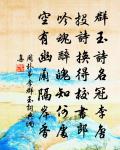 群玉詩名冠李唐
投詩換得校書郎
吟魂醉魄知何處
空有幽蘭隔岸香
周朴弔李群玉詞
集